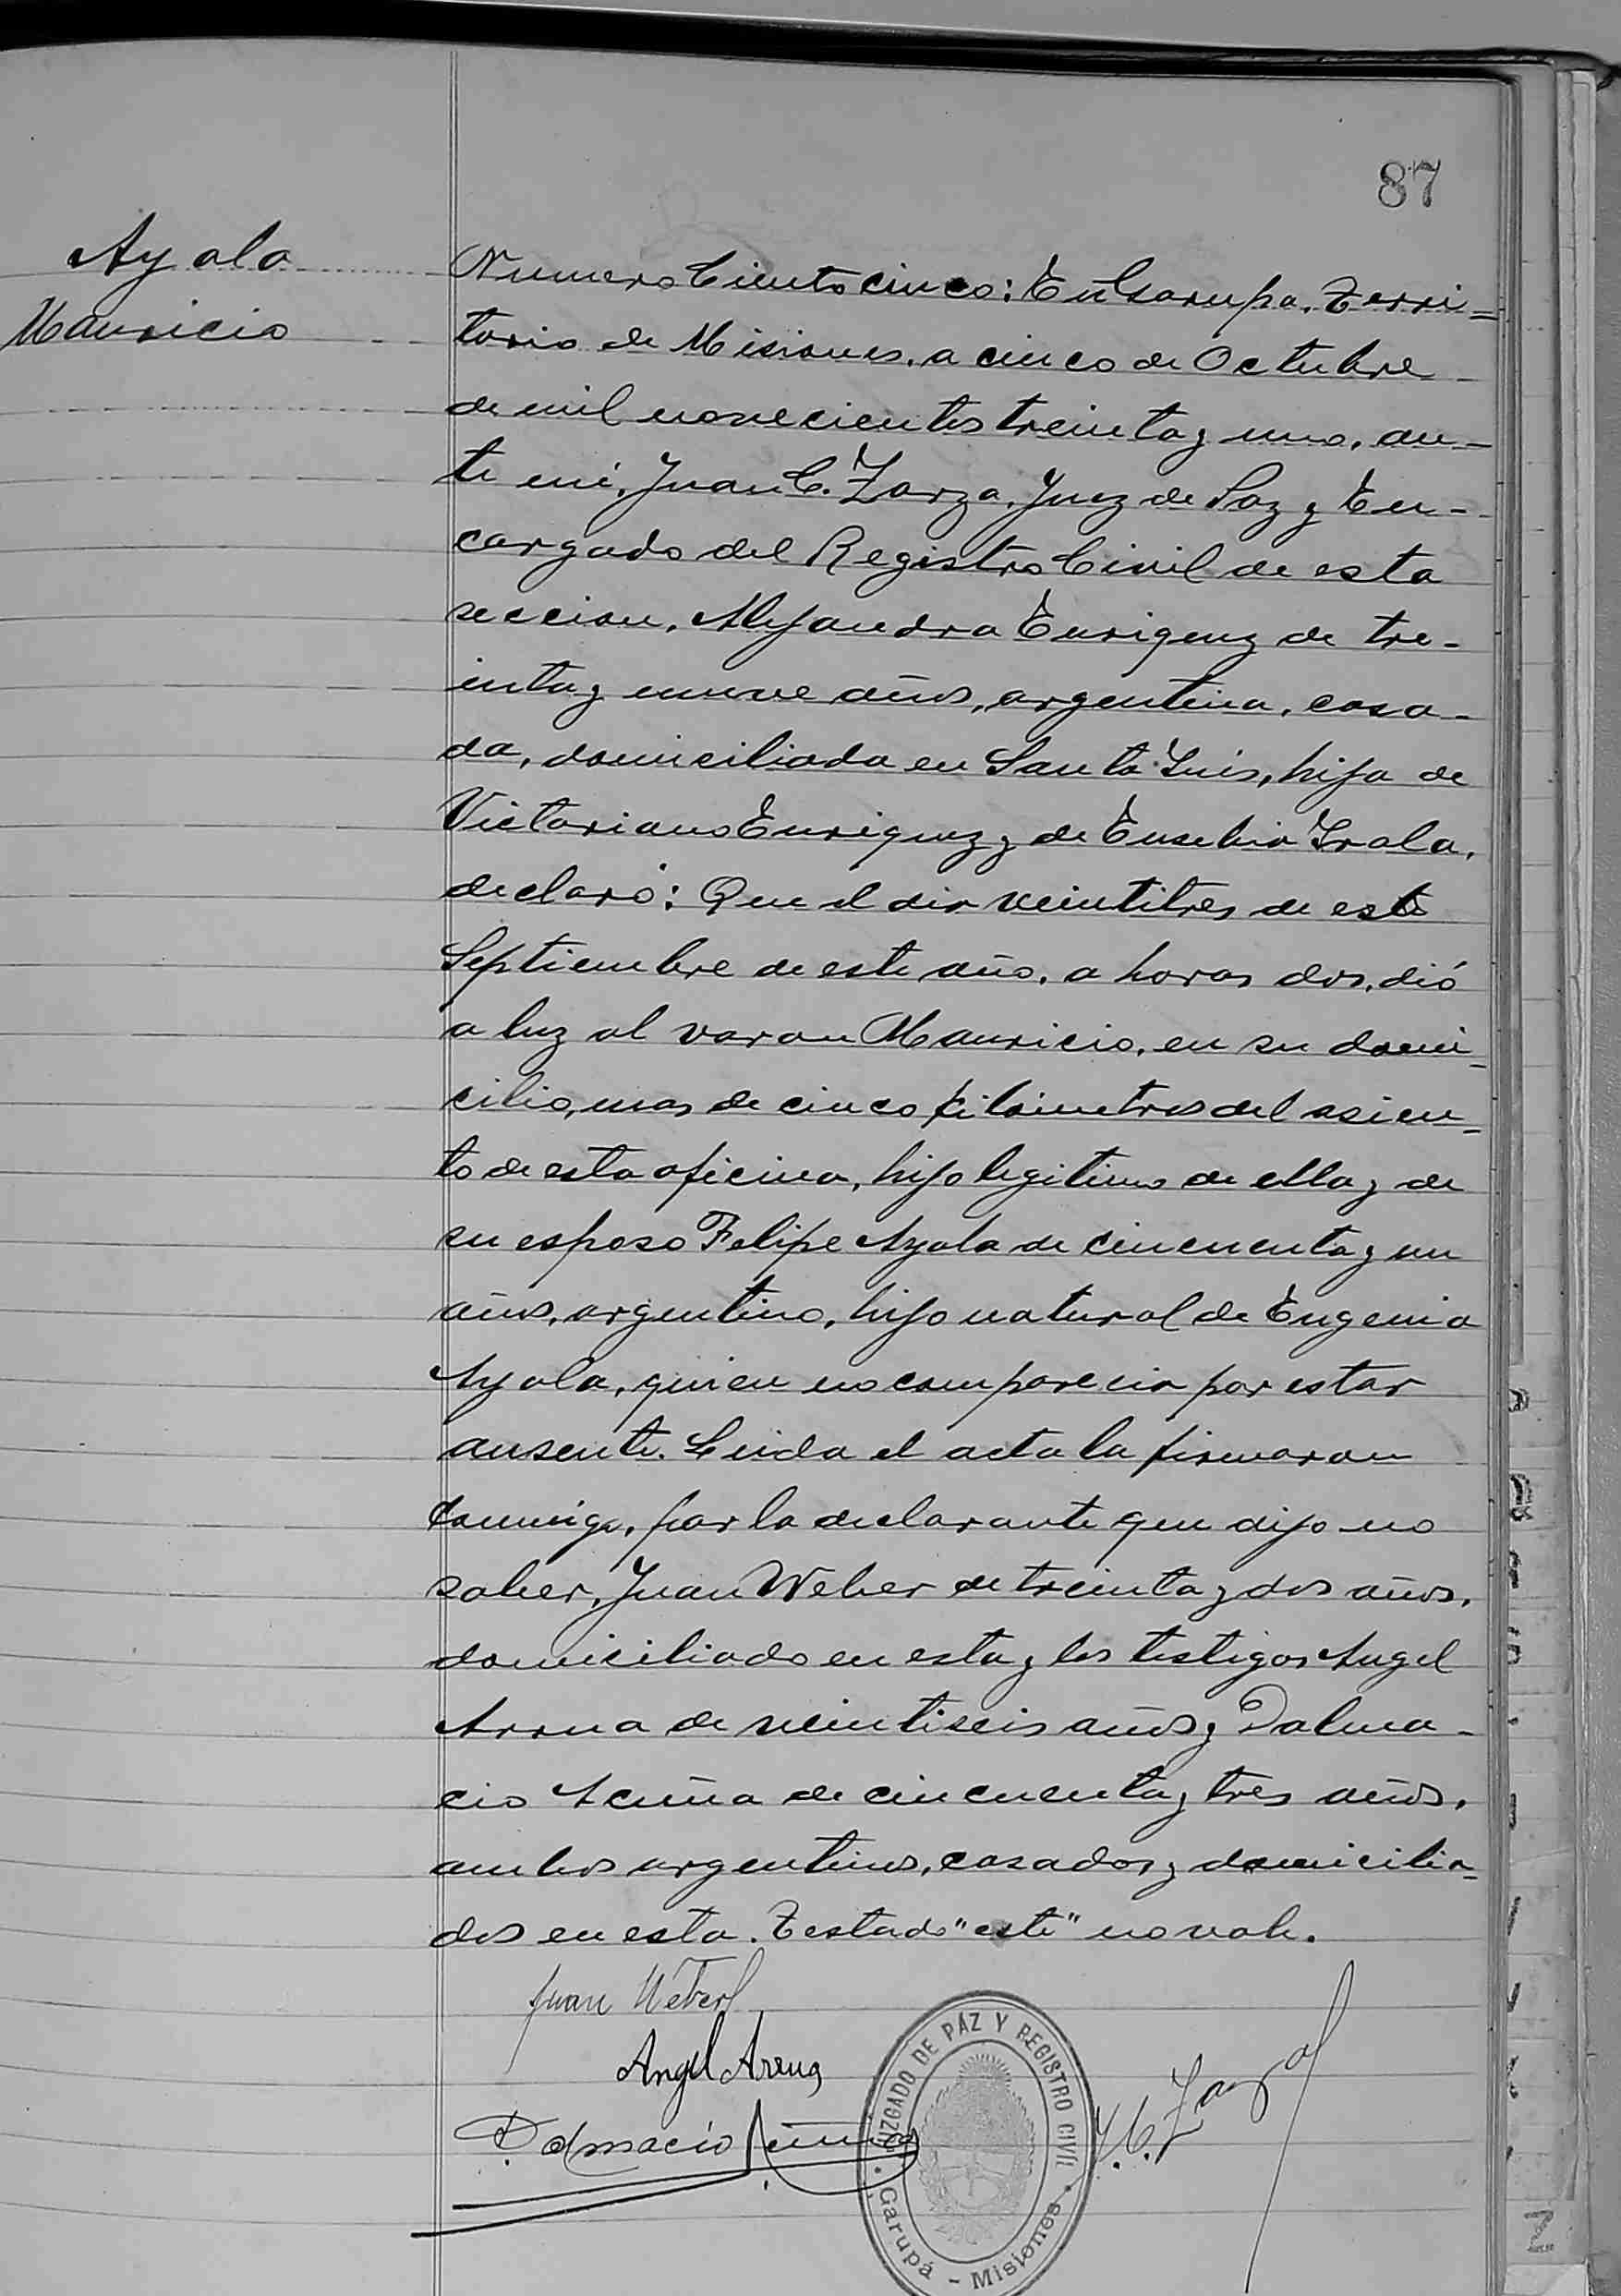 87
Ayala
Mauricio
Numero Ciento cinco: En Garupa, Terri=
torio de Misiones, a cinco de Octubre
de mil novecientos treinta y uno, an-
te mi, Juan C. Zarza, Juez de Paz y En-
cargado del Registro Civil de esta
seccion, Alejandra Enriquez de tre-
inta y nueve años, argentina, casa-
da, domiciliada en Santa Ines, hija de
Victoriano Enriquez y de Eusebia Irala,
declaró: Que el dia veintitres de este
Septiembre de este año, a horas dos, dió
a luz al varon Mauricio, en su domi=
cilio, mas de cinco kilometros del asien=
to de esta oficina, hijo legitimo de ella y de
su esposo Felipe Ayala de cincuenta y un
años, argentino, hijo natural de Eugenia
Ayala, quien no comparecia por estar
ausente. Leida el acta la firmaron
conmigo, por la declarante que dijo no
saber, Juan Weber de treinta y dos años,
domiciliado en esta y los testigos Angel
Arrua de veintiseis años y Dalma-
cio Acuña de cincuenta y tres años,
ambos argentinos, casados y domicilia=
dos en esta. Testado "este" no vale.
Juan Weber
Angel Arrua
Dalmacio Acuña
J. C. Zarza
JUZGADO DE PAZ Y REGISTRO CIVIL
Garupá - Misiones